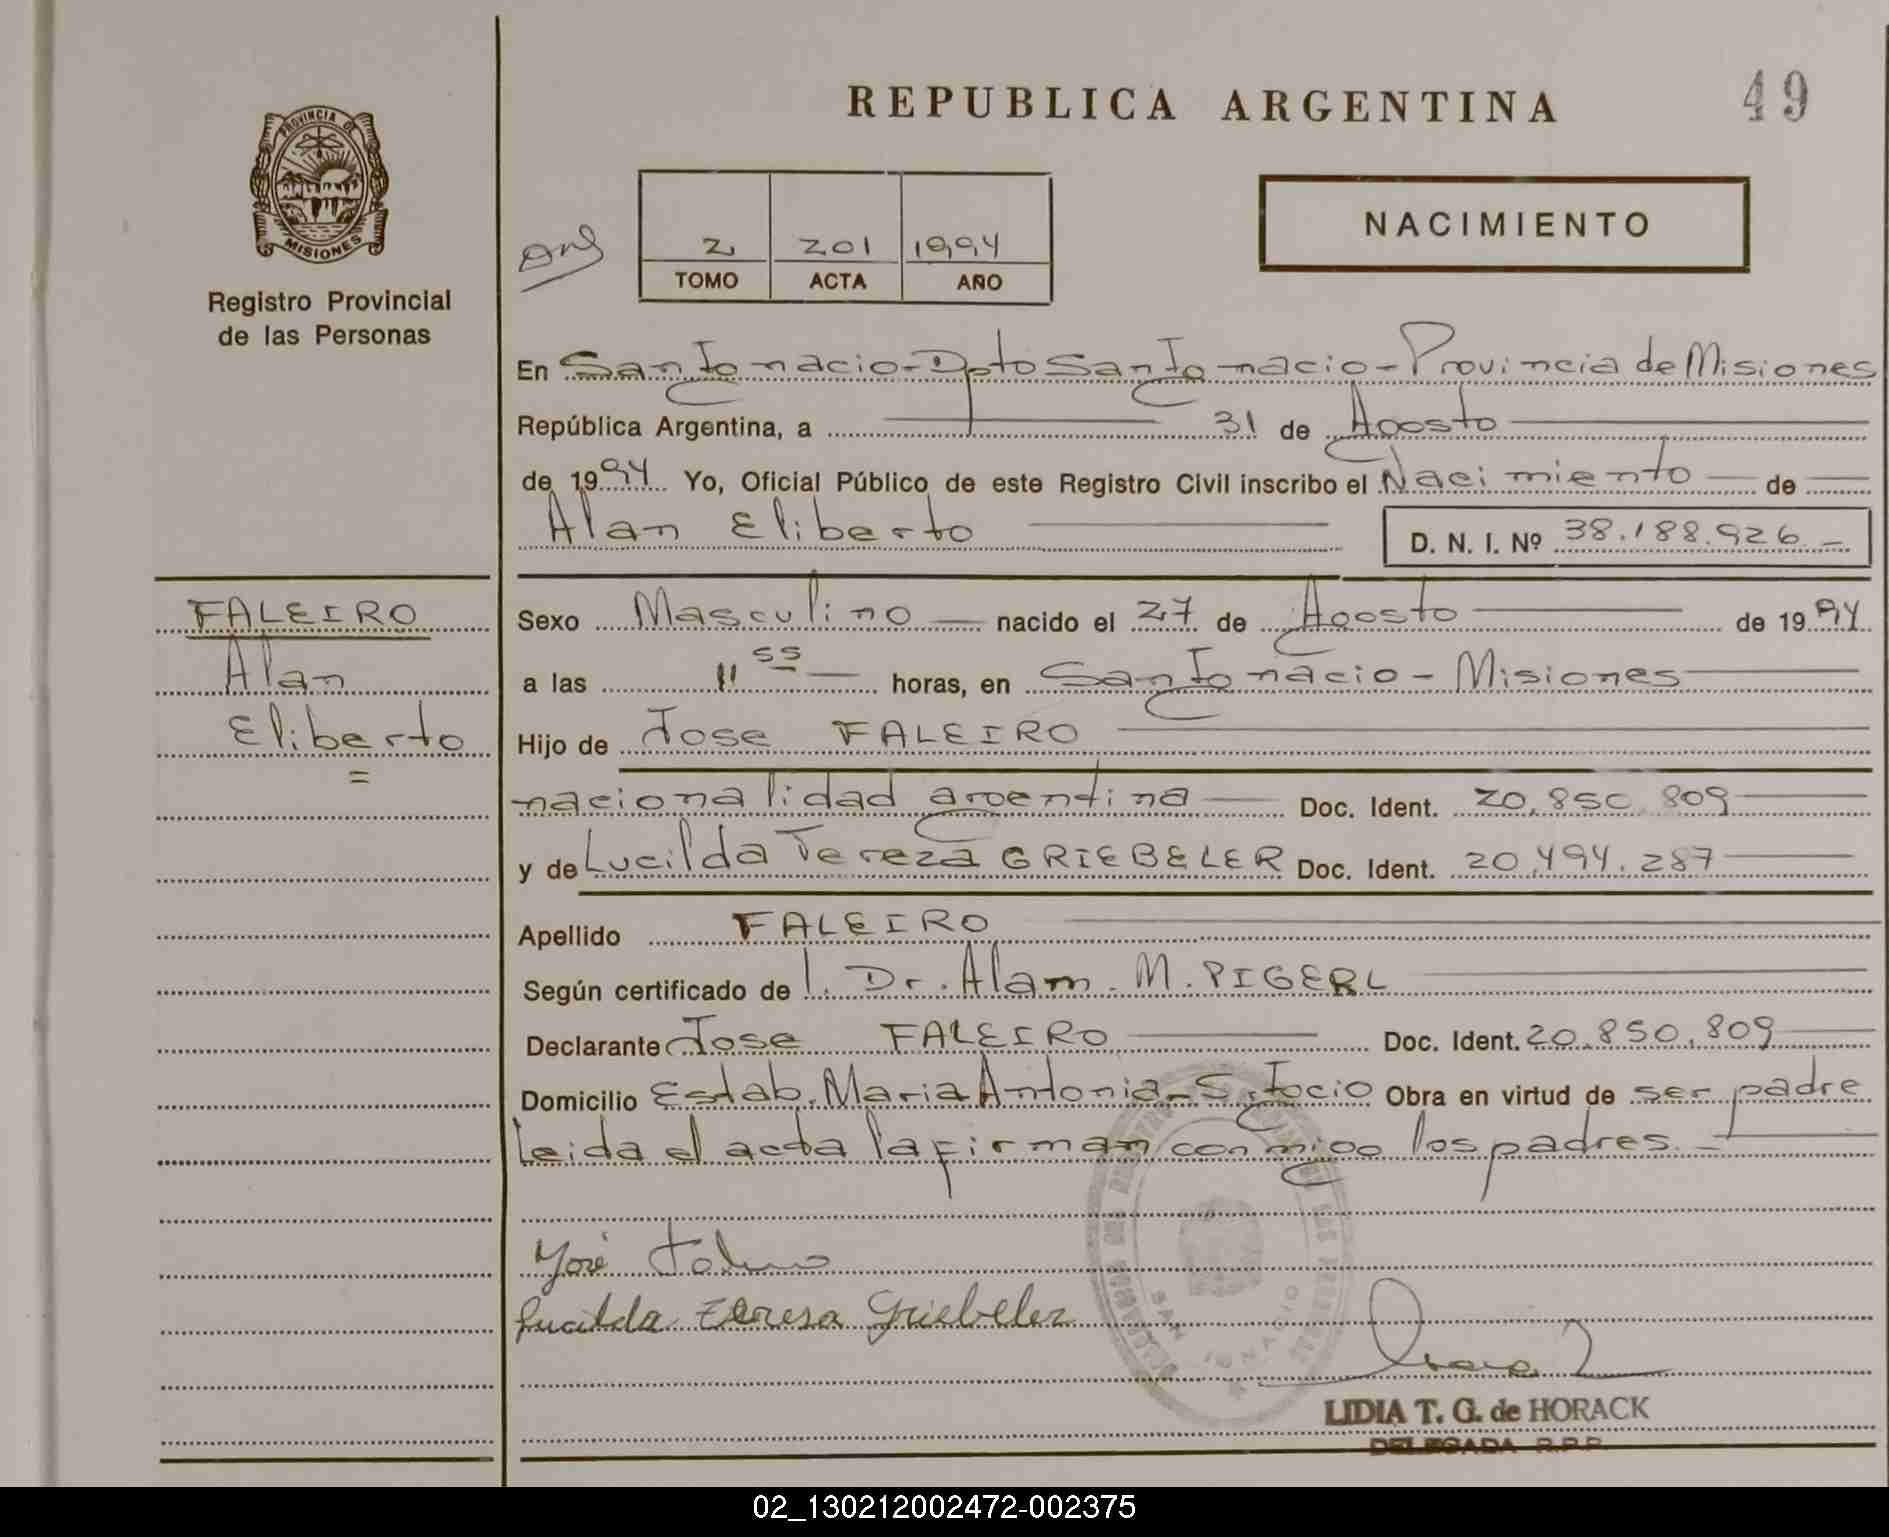 REPUBLICA ARGENTINA
49
PROVINCIA DE
MISIONES
Registro Provincial
de las Personas
2 201 1994
TOMO ACTA AÑO
NACIMIENTO
En San Ignacio - Dpto San Ignacio - Provincia de Misiones
República Argentina, a 31 de Agosto
de 1994 Yo, Oficial Público de este Registro Civil inscribo el Nacimiento de
Alan Eliberto D. N. I. Nº 38.188.926.-
FALEIRO
Alan
Eliberto
=
Sexo Masculino nacido el 27 de Agosto de 1994
a las 11 55 horas, en San Ignacio - Misiones
Hijo de Jose FALEIRO
nacionalidad argentina Doc. Ident. 20.850.809
y de Lucilda Tereza GRIEBELER Doc. Ident. 20.494.287
Apellido FALEIRO
Según certificado de l. Dr. Alam. M. PIGERL
Declarante Jose FALEIRO Doc. Ident. 20.850.809
Domicilio Estab. Maria Antonia - S. Igcio Obra en virtud de ser padre
Leida el acta la firman conmigo los padres. -
José
Lucilda Teresa Griebeler
SAN IGNACIO
LIDIA T. G. de HORACK
DELEGADA R.P.P.
02_130212002472-002375